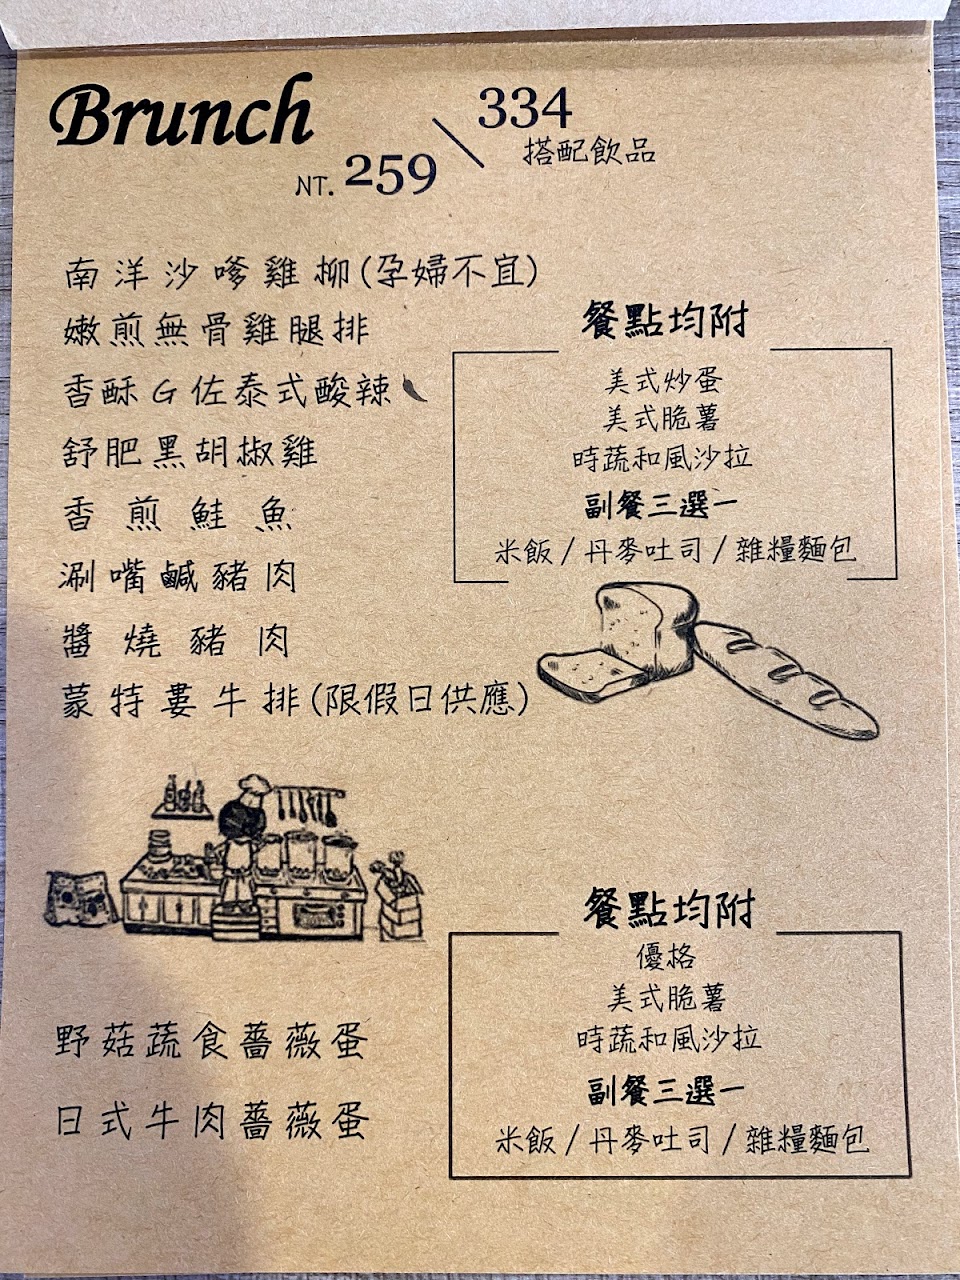 Brunch
NT. 259 \ 334
搭配飲品
南洋沙嗲雞柳(孕婦不宜)
嫩煎無骨雞腿排
香酥G佐泰式酸辣
舒肥黑胡椒雞
香煎鮭魚
涮嘴鹹豬肉
醬燒豬肉
蒙特婁牛排(限假日供應)
餐點均附
美式炒蛋
美式脆薯
時蔬和風沙拉
副餐三選一
米飯/丹麥吐司/雜糧麵包
野菇蔬食薔薇蛋
日式牛肉薔薇蛋
餐點均附
優格
美式脆薯
時蔬和風沙拉
副餐三選一
米飯/丹麥吐司/雜糧麵包